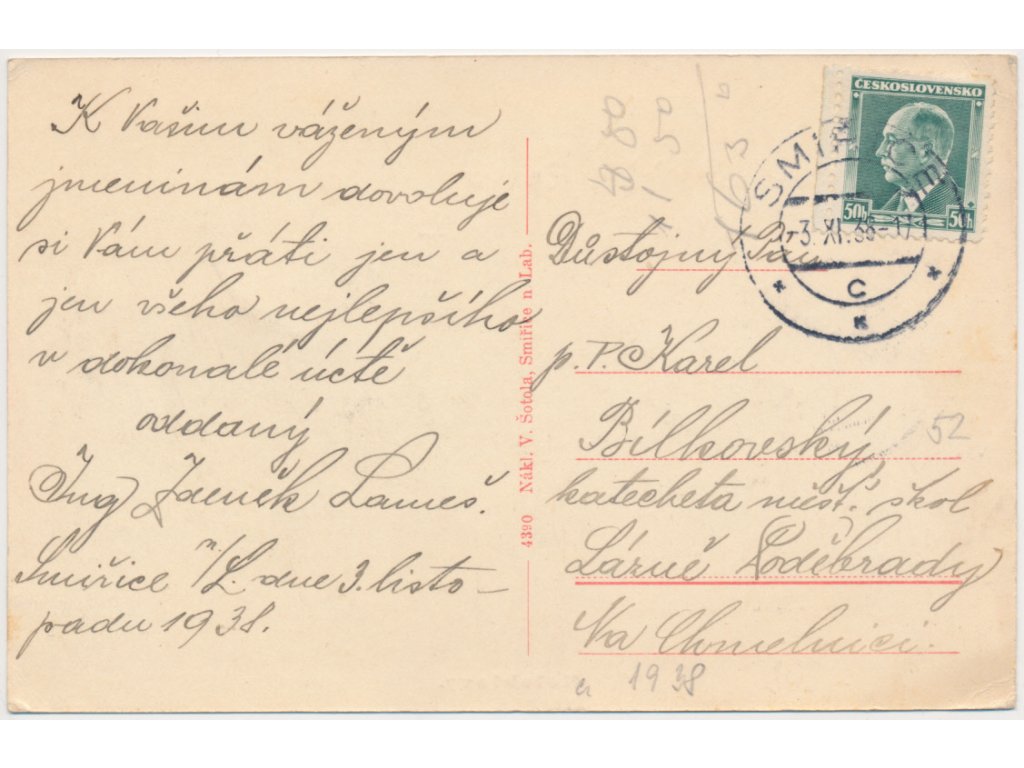 K Vašim váženým
jmeninám dovoluje
si Vám přáti jen a
jen všeho nejlepšího
v dokonalé úctě
oddaný
Ing Zdeněk Lameš.
Smiřice n/L. dne 3. listo-
padu 1938.
4390 Nákl. V. Šotola, Smiřice n. Lab.
880
150
163
ČESKOSLOVENSKO
50h 50h
SMIŘ
-3.XI.38-17
C
Důstojný Pan
p. P. Karel
Bílkovský,
katecheta měšť. škol
Lázně Poděbrady
Na Chmelnici.
52
1938